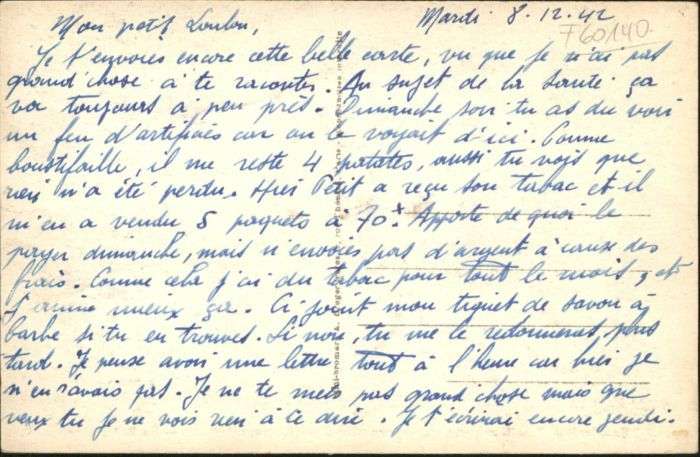 Mon petit Loulou, Mardi 8.12.42
F60140
Je t'envoies encore cette belle carte, vu que je n'ai pas
grand chose à te raconter. Au sujet de la santé ça
va toujours à peu près. Dimanche soir tu as du voir
un feu d'artifices car on le voyait d'ici. Comme
boustifaille, il me reste 4 patates, aussi tu vois que
rien n'a été perdu. Hier Petit a reçu son tabac et il
m'en a vendu 5 paquets à 70 Apporte de quoi le
payer dimanche, mais n'envoies pas d'argent à cause des
frais. Comme cela j'ai du tabac pour tout le mois, et
j'aime mieux ça. Ci joint mon tiquet de savon à
barbe si tu en trouves. Si non, tu me le redonneras plus
tard. Je pense avoir une lettre tout à l'heure car hier je
n'en avais pas. Je ne te mets pas grand chose mais que
veux tu je ne vois rien à te dire. Je t'écrirai encore jeudi.